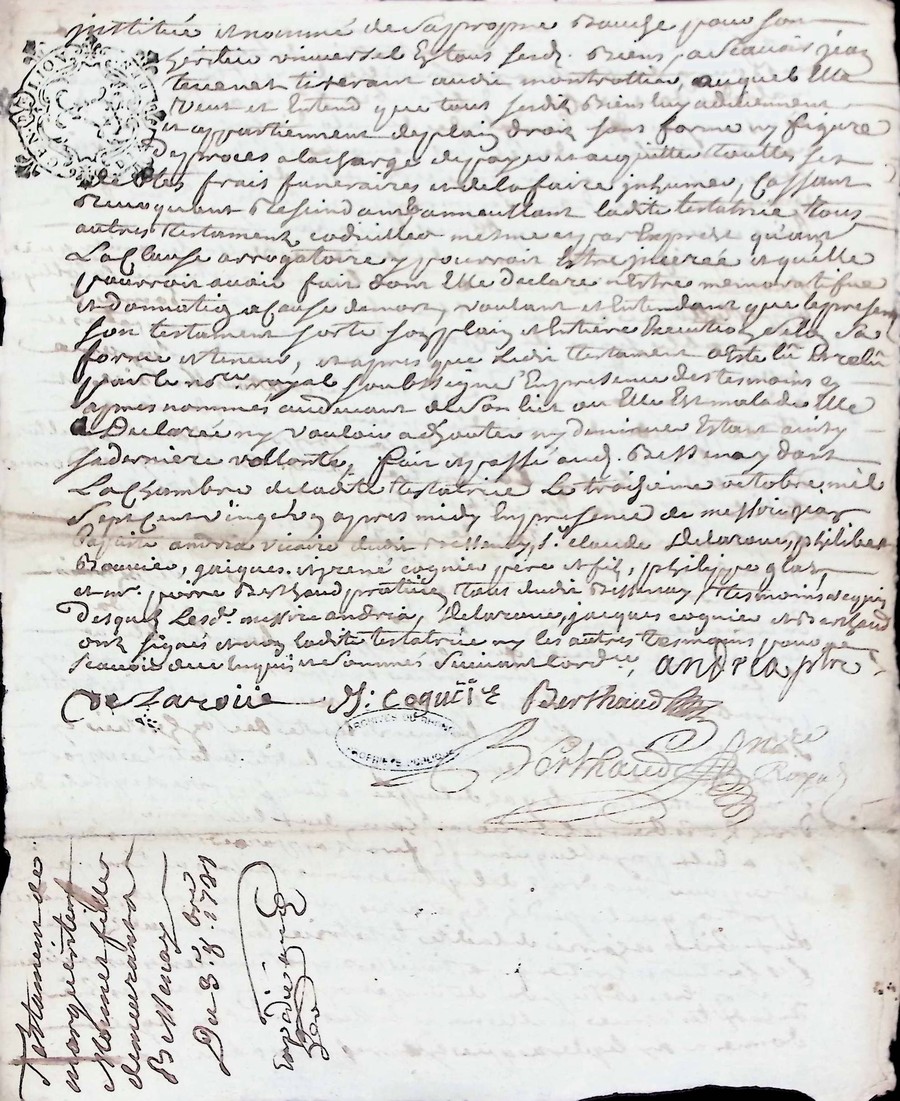 institué et nommé de sa propre bouche pour son
héritier universel En tous sesd. Biens, a scavoir jean
tevenet tisserant audit montrottier, auquel Elle
Veut et Entend que tous sesdits Biens luy adviennent
et appartiennent de plain droit sans forme ny figure
De proces a la charge de payer et acquitter touttes ses
debtes frais funeraires et de la faire inhumer, Cassant
Revoquant Rescindant et anneullant ladite testatrice tous
autres testament codicilles mesme et par Exprest quant
La Clause arrogatoire y pourroit Estre inserée et quelle
pourroit avoir fait dont Elle Declare n Estre memoratifve
et donnation a Cause de mort, voulant et Entendant que le present
son testament sorte son plain et Entiere Execution selon sa
forme et teneur, et apres que Ledit testament a Esté lû Et relû
par le nore royal soubsigné En presence des tesmoins cy
apres nommés au devant de son lict ou Elle Est malade Elle
a Declarée ny vouloir adjouter ny diminuer Estant ainsy
sa derniere vollonté, fait et passé aud. Bessenay dans
La Chambre de ladite testatrice Le troisieme octobre mil
Sept Cent vingt un apres midy En presence de messire jean
andria vicaire dudit Bessenay, Sr. claude Delaroue, philibert
jacques et rené coquier pere et fils, philippe
et mr. pierre Berthaud praticien tous dudit Bessenay tesmoins requis
Desquels Lesd. messire andria, Delaroue, jacques coquier et Berthaud
ont signés et non ladite testatrice ny les autres tesmoins pour ne
scavoir de ce Enquis et sommés suivant l ordce. andria ptre
De Laroüe J. coquïïé Berthaud
Berthaud Nore
Royal
ARCHIVES DU RHONE
PROPRIÉTÉ PUBLIQUE
Testament de
marguerite
fille
demeurant a
Bessenay
Du 3e. 8bre 1721
Expedié